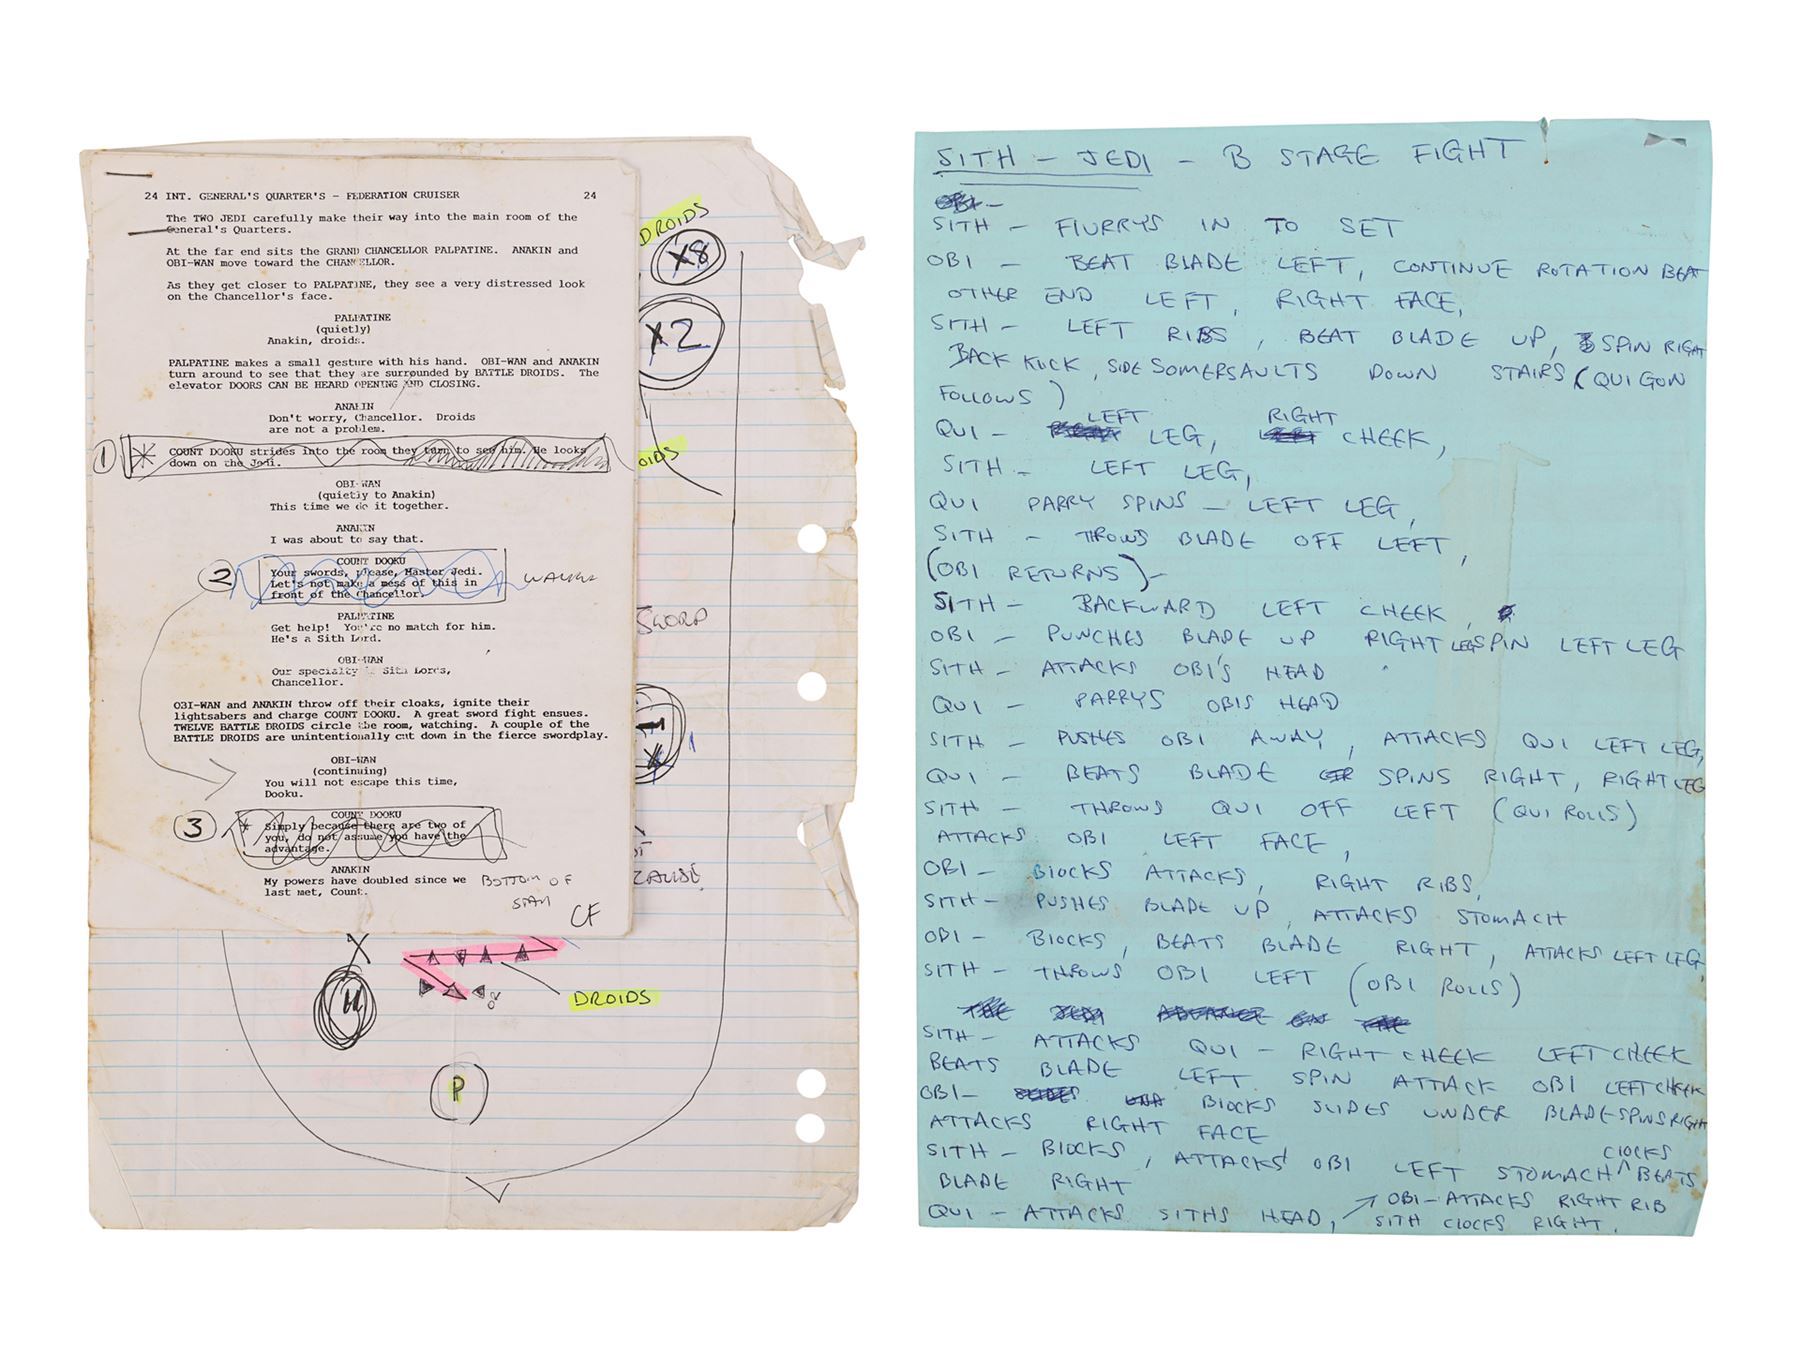 24 INT. GENERAL'S QUARTER'S - FEDERATION CRUISER 24
The TWO JEDI carefully make their way into the main room of the
General's Quarters.
At the far end sits the GRAND CHANCELLOR PALPATINE. ANAKIN and
OBI-WAN move toward the CHANCELLOR.
As they get closer to PALPATINE, they see a very distressed look
on the Chancellor's face.
PALPATINE
(quietly)
Anakin, droids.
PALPATINE makes a small gesture with his hand. OBI-WAN and ANAKIN
turn around to see that they are surrounded by BATTLE DROIDS. The
elevator DOORS CAN BE HEARD OPENING AND CLOSING.
ANAKIN
Don't worry, Chancellor. Droids
are not a problem.
1 * COUNT DOOKU strides into the room they turn to see him. He looks
down on the Jedi.
OBI-WAN
(quietly to Anakin)
This time we do it together.
ANAKIN
I was about to say that.
COUNT DOOKU
2 Your swords, please, Master Jedi.
Let's not make a mess of this in
front of the Chancellor.
PALPATINE
Get help! You're no match for him.
He's a Sith Lord.
OBI-WAN
Our specialty is Sith Lords,
Chancellor.
OBI-WAN and ANAKIN throw off their cloaks, ignite their
lightsabers and charge COUNT DOOKU. A great sword fight ensues.
TWELVE BATTLE DROIDS circle the room, watching. A couple of the
BATTLE DROIDS are unintentionally cut down in the fierce swordplay.
OBI-WAN
(continuing)
You will not escape this time,
Dooku.
COUNT DOOKU
3 * Simply because there are two of
you, do not assume you have the
advantage.
ANAKIN
My powers have doubled since we
last met, Count.
BOTTOM OF
CF
DROIDS
X8
X2
OIDS
SWORD
DROIDS
P
SITH - JEDI - B STAGE FIGHT
SITH - FLURRYS IN TO SET
OBI - BEAT BLADE LEFT, CONTINUE ROTATION BEAT
OTHER END LEFT, RIGHT FACE,
SITH - LEFT RIBS, BEAT BLADE UP, SPIN RIGHT
BACK KICK, SIDE SOMERSAULTS DOWN STAIRS (QUI GON
FOLLOWS)
QUI - LEFT LEG, RIGHT CHEEK,
SITH - LEFT LEG,
QUI PARRY SPINS - LEFT LEG,
SITH - THROWS BLADE OFF LEFT,
(OBI RETURNS) -
SITH - BACKWARD LEFT CHEEK,
OBI - PUNCHES BLADE UP RIGHT LEG SPIN LEFT LEG
SITH - ATTACKS OBI'S HEAD
QUI - PARRYS OBIS HEAD
SITH - PUSHES OBI AWAY, ATTACKS QUI LEFT LEG,
QUI - BEATS BLADE SPINS RIGHT, RIGHT LEG
SITH - THROWS QUI OFF LEFT (QUI ROLLS)
ATTACKS OBI LEFT FACE,
OBI - BLOCKS ATTACKS, RIGHT RIBS,
SITH - PUSHES BLADE UP, ATTACKS STOMACH
OBI - BLOCKS, BEATS BLADE RIGHT, ATTACKS LEFT LEG,
SITH - THROWS OBI LEFT (OBI ROLLS)
SITH - ATTACKS QUI - RIGHT CHEEK LEFT CHEEK
BEATS BLADE LEFT SPIN ATTACK OBI LEFT CHEEK
OBI - BLOCKS SLIDES UNDER BLADE SPINS RIGHT
ATTACKS RIGHT FACE
SITH - BLOCKS, ATTACKS OBI LEFT STOMACH CLOCKS BEATS
BLADE RIGHT
QUI - ATTACKS SITHS HEAD, OBI - ATTACKS RIGHT RIB
SITH CLOCKS RIGHT.